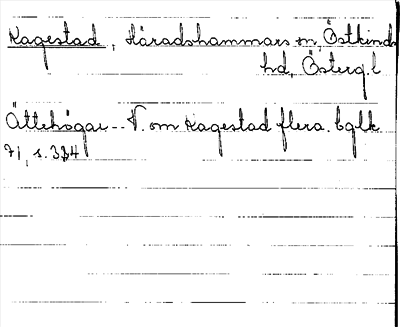 Kagestad, Häradshammars sn, Östkinds
hd, Österg.l
Ättehögar -- N. om Kagestad flera. Eglk
71, s. 384